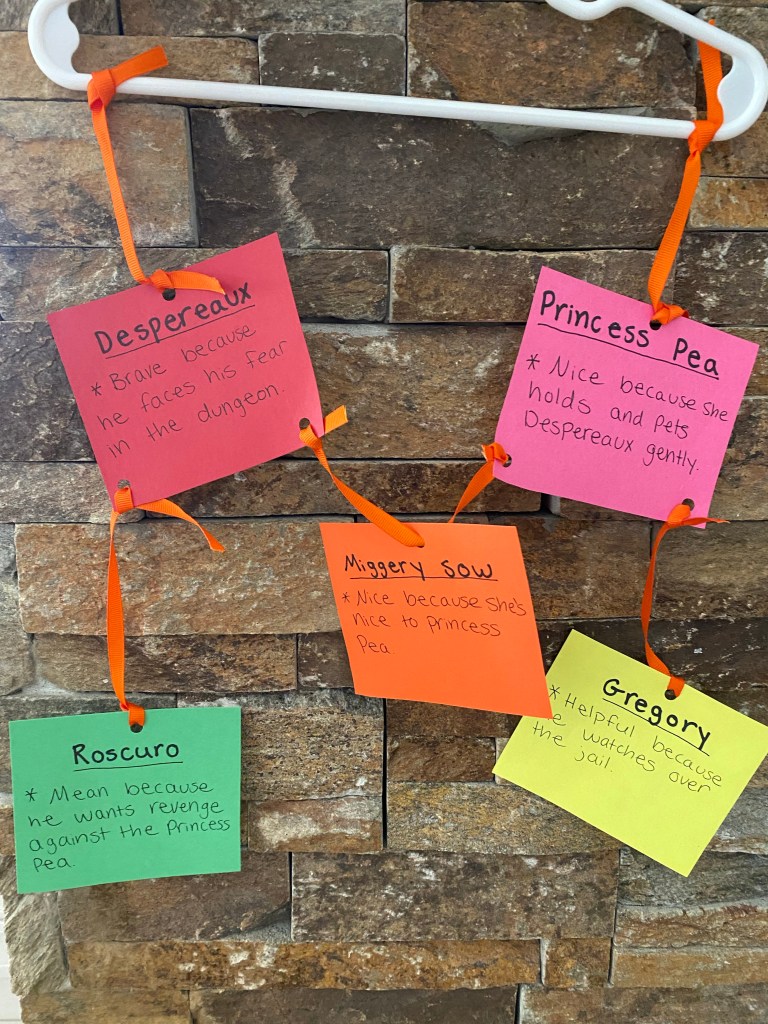 Despereaux
* Brave because
he faces his fear
in the dungeon.
Princess Pea
* Nice because she
holds and pets
Despereaux gently.
Miggery Sow
* Nice because she's
nice to princess
Pea.
Gregory
* Helpful because
e watches over
the jail.
Roscuro
* Mean because
he wants revenge
against the Princess
Pea.